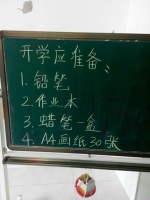 开学应准备:
1.铅笔
2.作业本
3.蜡笔一盒
4.A4画纸30张